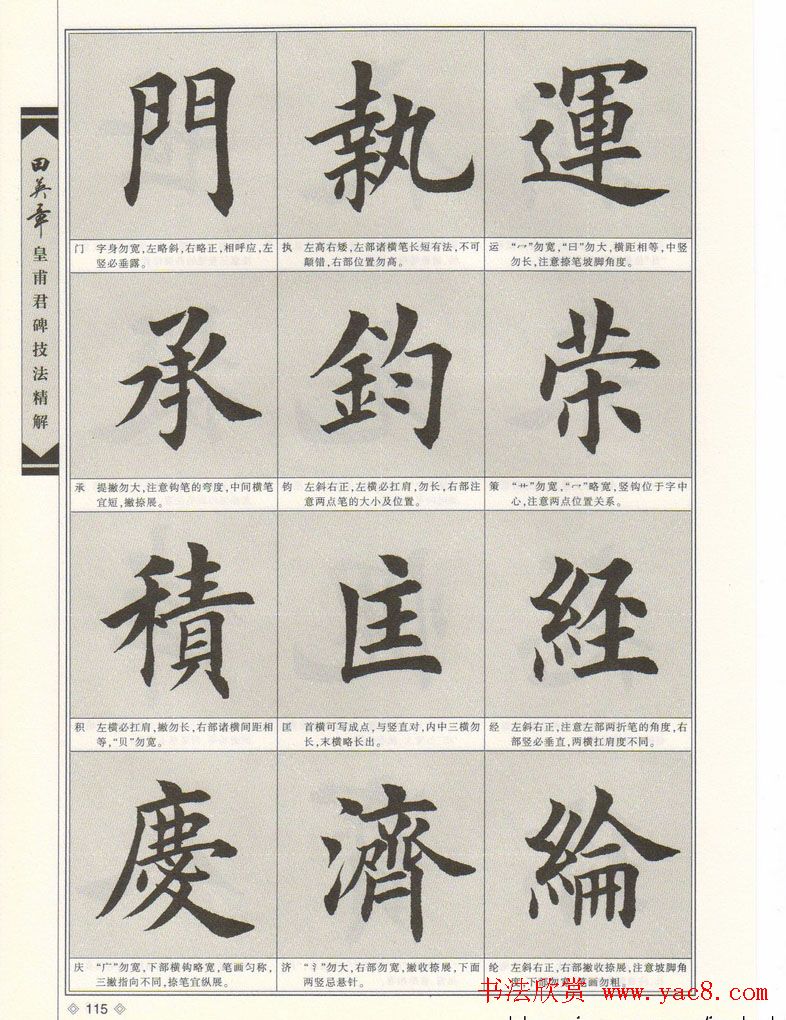 田英章
皇甫君碑技法精解
門 執 運
门 字身勿宽,左略斜,右略正,相呼应,左
竖必垂露。
执 左高右矮,左部诸横笔长短有法,不可
颠错,右部位置勿高。
运 “冖”勿宽,“曰”勿大,横距相等,中竖
勿长,注意捺笔坡脚角度。
承 鈞 荣
承 提撇勿大,注意钩笔的弯度,中间横笔
宜短,撇捺展。
钧 左斜右正,左横必扛肩,勿长,右部注
意两点笔的大小及位置。
策 “艹”勿宽,“冖”略宽,竖钩位于字中
心,注意两点位置关系。
積 匡 経
积 左横必扛肩,撇勿长,右部诸横间距相
等,“贝”勿宽。
匡 首横可写成点,与竖直对,内中三横勿
长,末横略长出。
经 左斜右正,注意左部两折笔的角度,右
部竖必垂直,两横扛肩度不同。
慶 濟 綸
庆 “广”勿宽,下部横钩略宽,笔画匀称,
三撇指向不同,捺笔宜纵展。
济 “氵”勿大,右部勿宽,撇收捺展,下面
两竖忌悬针。
纶 左斜右正,右部撇收捺展,注意坡脚角
度,下部勿宽,笔画勿粗。
115
书法欣赏 www.yac8.com